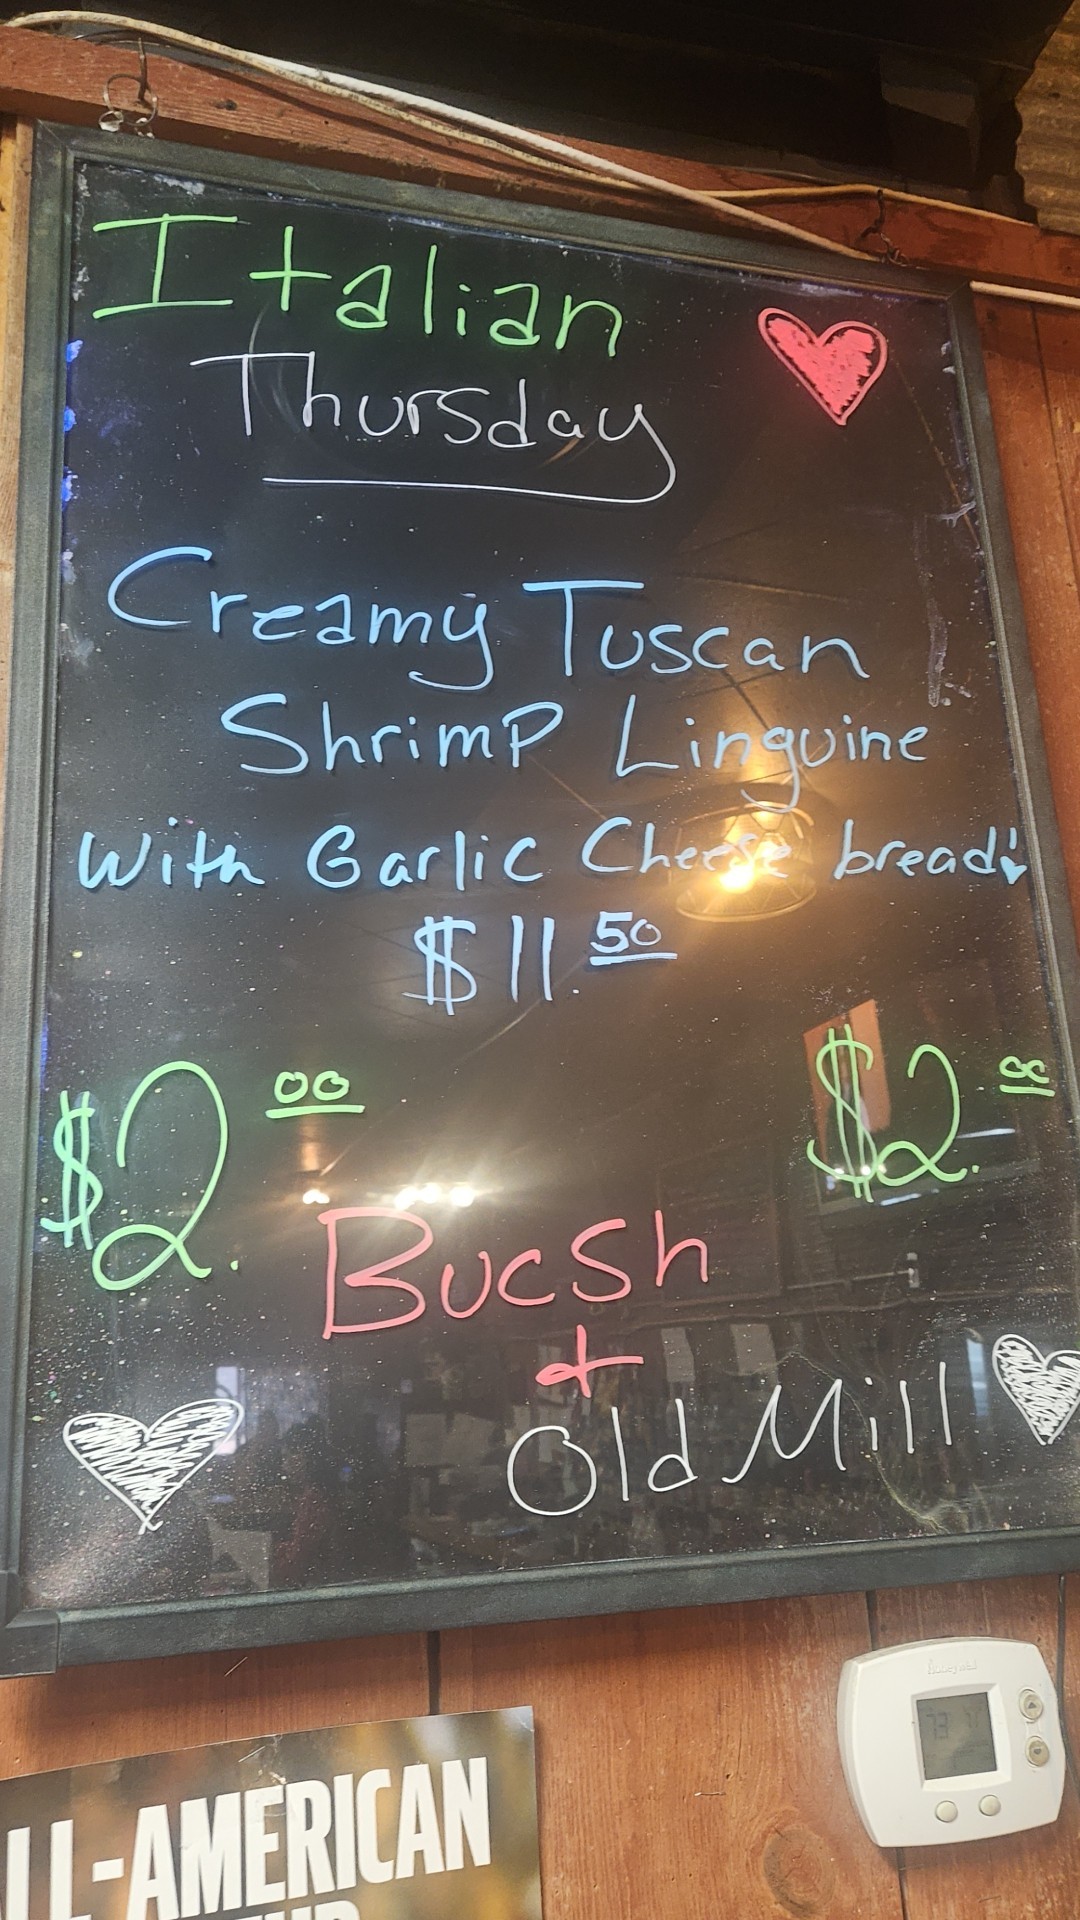 Italian
Thursday
Creamy Tuscan
Shrimp Linguine
with Garlic Cheese bread!
$11.50
$2.00
$2.00
Bucsh
+
Old Mill
Honeywell
73
LL-AMERICAN